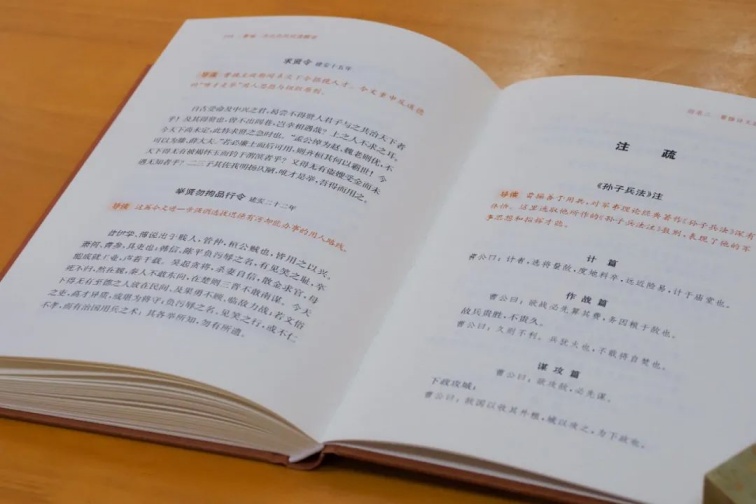 求贤令 建安十五年
导读：
自古受命及中兴之君，曷尝不得贤人君子与之共治天下者
乎？及其得贤也，曾不出闾巷，岂幸相遇哉？上之人不求之耳。
今天下尚未定，此特求贤之急时也。“孟公绰为赵、魏老则优，不
可以为滕、薛大夫。”若必廉士而后可用，则齐桓其何以霸世！今
天下得无有被褐怀玉而钓于渭滨者乎？又得无有盗嫂受金而未
遇无知者乎？二三子其佐我明扬仄陋，唯才是举，吾得而用之。
举贤勿拘品行令 建安二十二年
导读：这篇令文进一步强调选拔进退有治国能力者的用人路线。
昔伊挚、傅说出于贱人，管仲，桓公贼也，皆用之以兴。
萧何、曹参，县吏也；韩信、陈平负污辱之名，有见笑之耻，卒
能成就王业，声著千载。吴起贪将，杀妻自信，散金求官，母
死不归，然在魏，秦人不敢东向，在楚则三晋不敢南谋。今天
下得无有至德之人放在民间，及果勇不顾，临敌力战；若文俗
之吏，高才异质，或堪为将守；负污辱之名，见笑之行，或不仁
不孝，而有治国用兵之术：其各举所知，勿有所遗。
注 疏
《孙子兵法》注
导读：曹操善于用兵，对军事理论经典著作《孙子兵法》深有
多思想和指挥才能。
计 篇
曹公曰：计者，选将量敌，度地料卒，远近险易，计于庙堂也。
作战篇
曹公曰：欲战必先算其费，务因粮于敌也。
故兵贵胜，不贵久。
曹公曰：久则不利。兵犹火也，不戢将自焚也。
谋攻篇
曹公曰：欲攻敌，必先谋。
下政攻城；
曹公曰：敌国以收其外粮，城以液之，为下政攻。